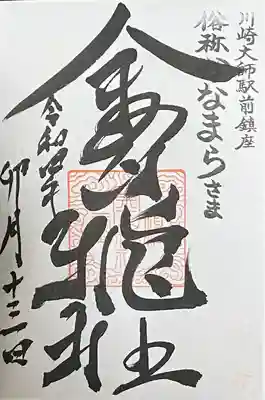 川崎大師駅前鎮座
俗称かなまらさま
金
令和四年
卯月十三日